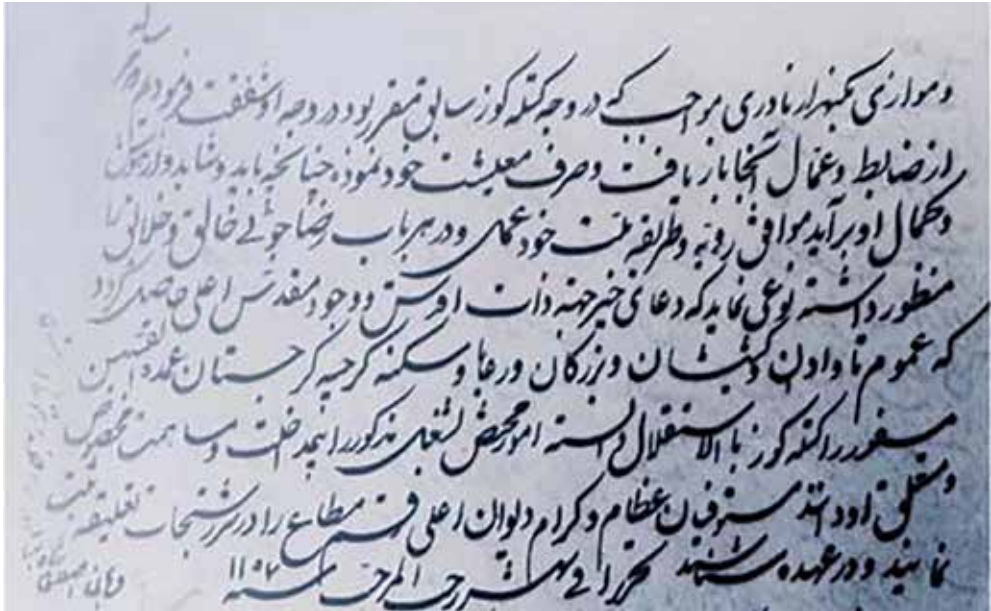 و موازی یکهزار نادری مواجب که در وجه کتله کوز سابق مقرر بود در وجه او شفقت فرمودیم که
از ضابط و عمال آنجا بازیافت و صرف معیشت خود نموده چنانچه باید و شاید و از
و کمال او برآید موافق رویه و طریقه ملت خود عمل و در هر باب رضاجوئی خالق و خلائق را
منظور داشته نوعی نماید که دعای خیر جهته ذات اقدس و وجود مقدس اعلی حاصل گردد
که عموم تاوادان و کشیشان و بزرگان و رعایا و سکنه گرجیه گرجستان عمدة القسیسین
مسفور را کتله کوز بالاستقلال دانسته امور مختص بشغل مذکور را بمداخلت و مساهمت مخصوص
و متعلق او دانند مستوفیان عظام و کرام دیوان اعلی رقم مطاع را در سررشتجات تعلیقه ثبت
نمایند و در عهده شناسند تحریرا فی شهر رجب المرجب سنه ۱۱۵۷